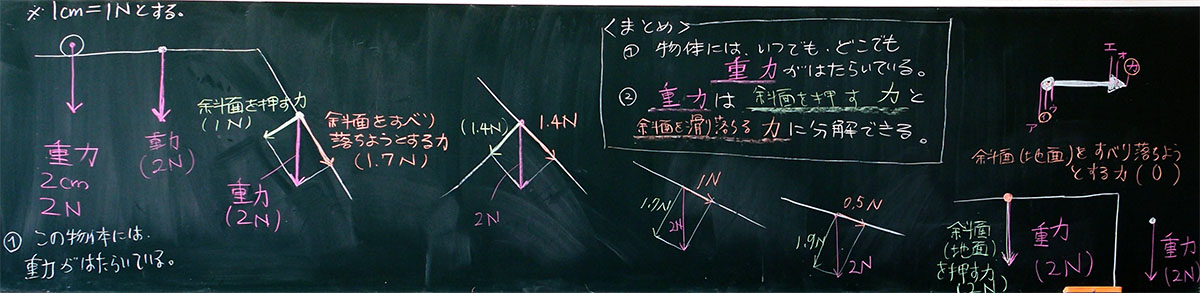 ※1cm=1Nとする。
重力
2cm
2N
重力
(2N)
① この物体には、
重力がはたらいている。
斜面を押す力
(1N)
斜面をすべり
落ちようとする力
(1.7N)
重力
(2N)
(1.4N)
1.4N
2N
<まとめ>
① 物体には、いつでも、どこでも
重力がはたらいている。
② 重力は斜面を押す力と
斜面を滑り落ちる力に分解できる。
1N
1.7N
2N
0.5N
1.9N
2N
エ
オ
カ
ア
斜面(地面)をすべり落ちよう
とする力(0)
斜面
(地面)
を押す力
(2N)
重力
(2N)
重力
(2N)